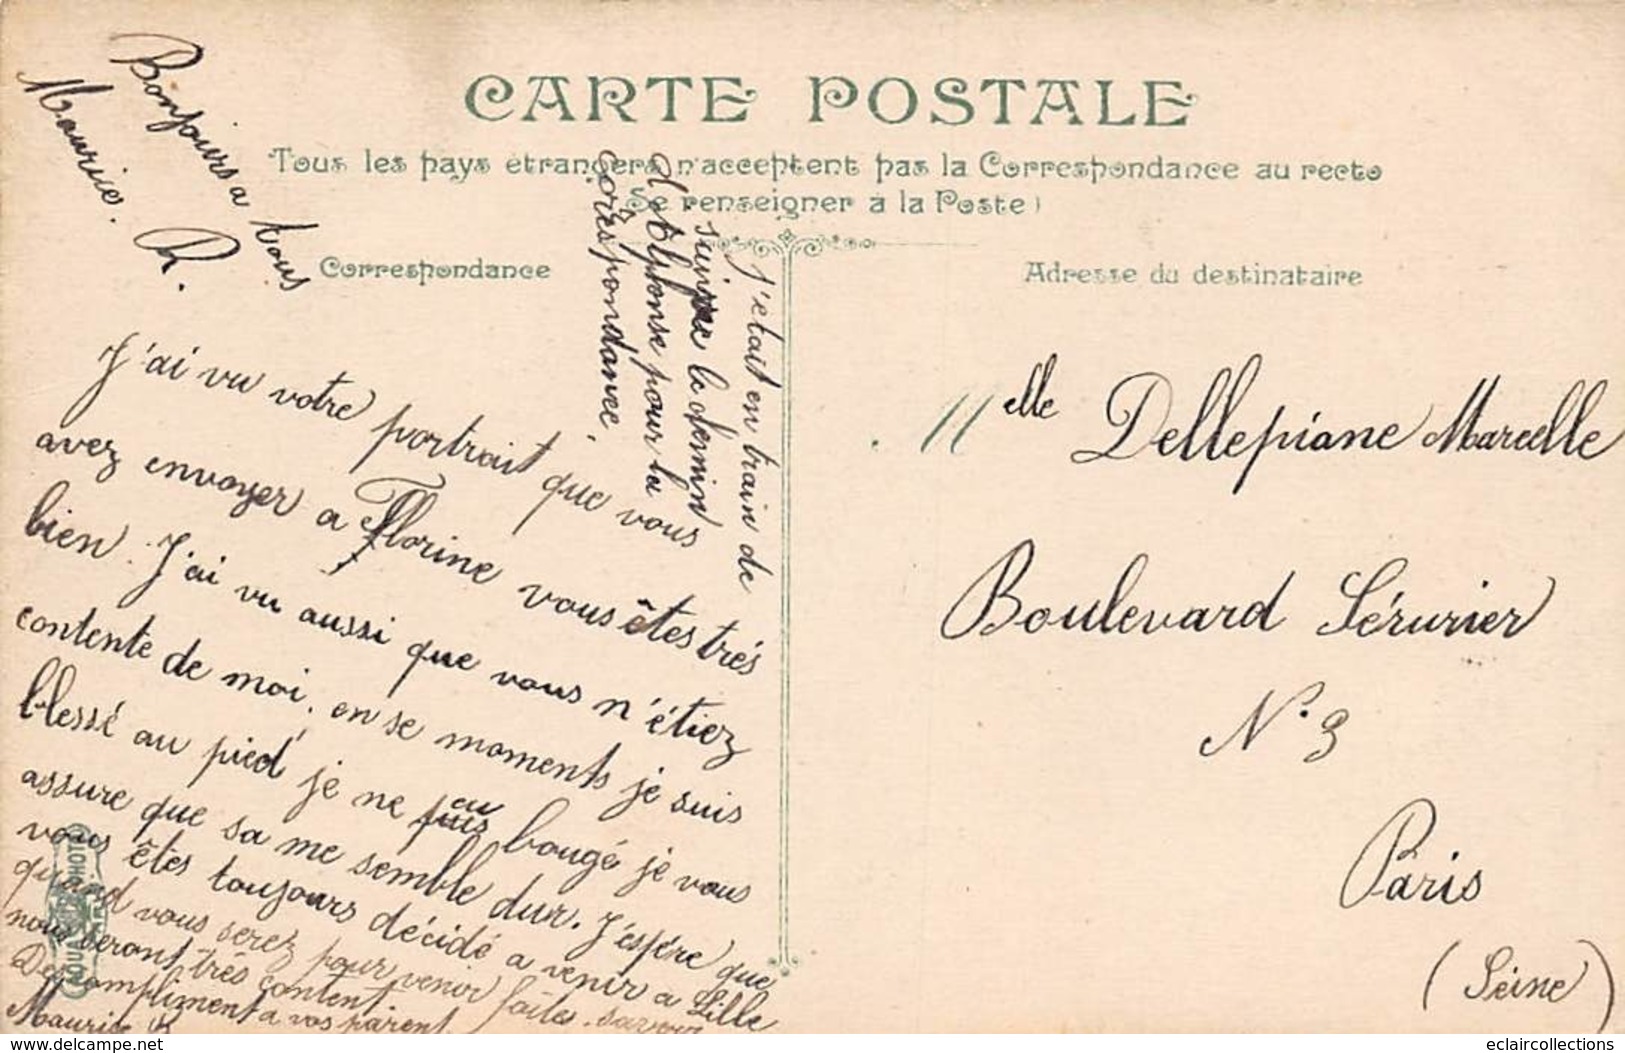 CARTE POSTALE
Tous les pays étrangers n'acceptent pas la Correspondance au recto
Se renseigner à la Poste)
Correspondance
Adresse du destinataire
Bonjours a tous
Maurice. R.
J'ai vu votre portrait que vous
avez envoyer a Florine vous êtes trés
bien. J'ai vu aussi que vous n'étiez
contente de moi, en se moments je suis
blessé au pied je ne puis bougé je vous
assure que sa me semble dur. J'espére que
vous êtes toujours décidé a venir a Lille
quand vous serez pour venir faites savoir
nous seront trés content.
Des compliment a vos parent
Maurice R
J'etait en train de
suivre le demin
d'Alphonse pour la
corêspondance.
Melle Dellepiane Marcelle
Boulevard Sérurier
N. 3
Paris
(Seine)
eclaircollections